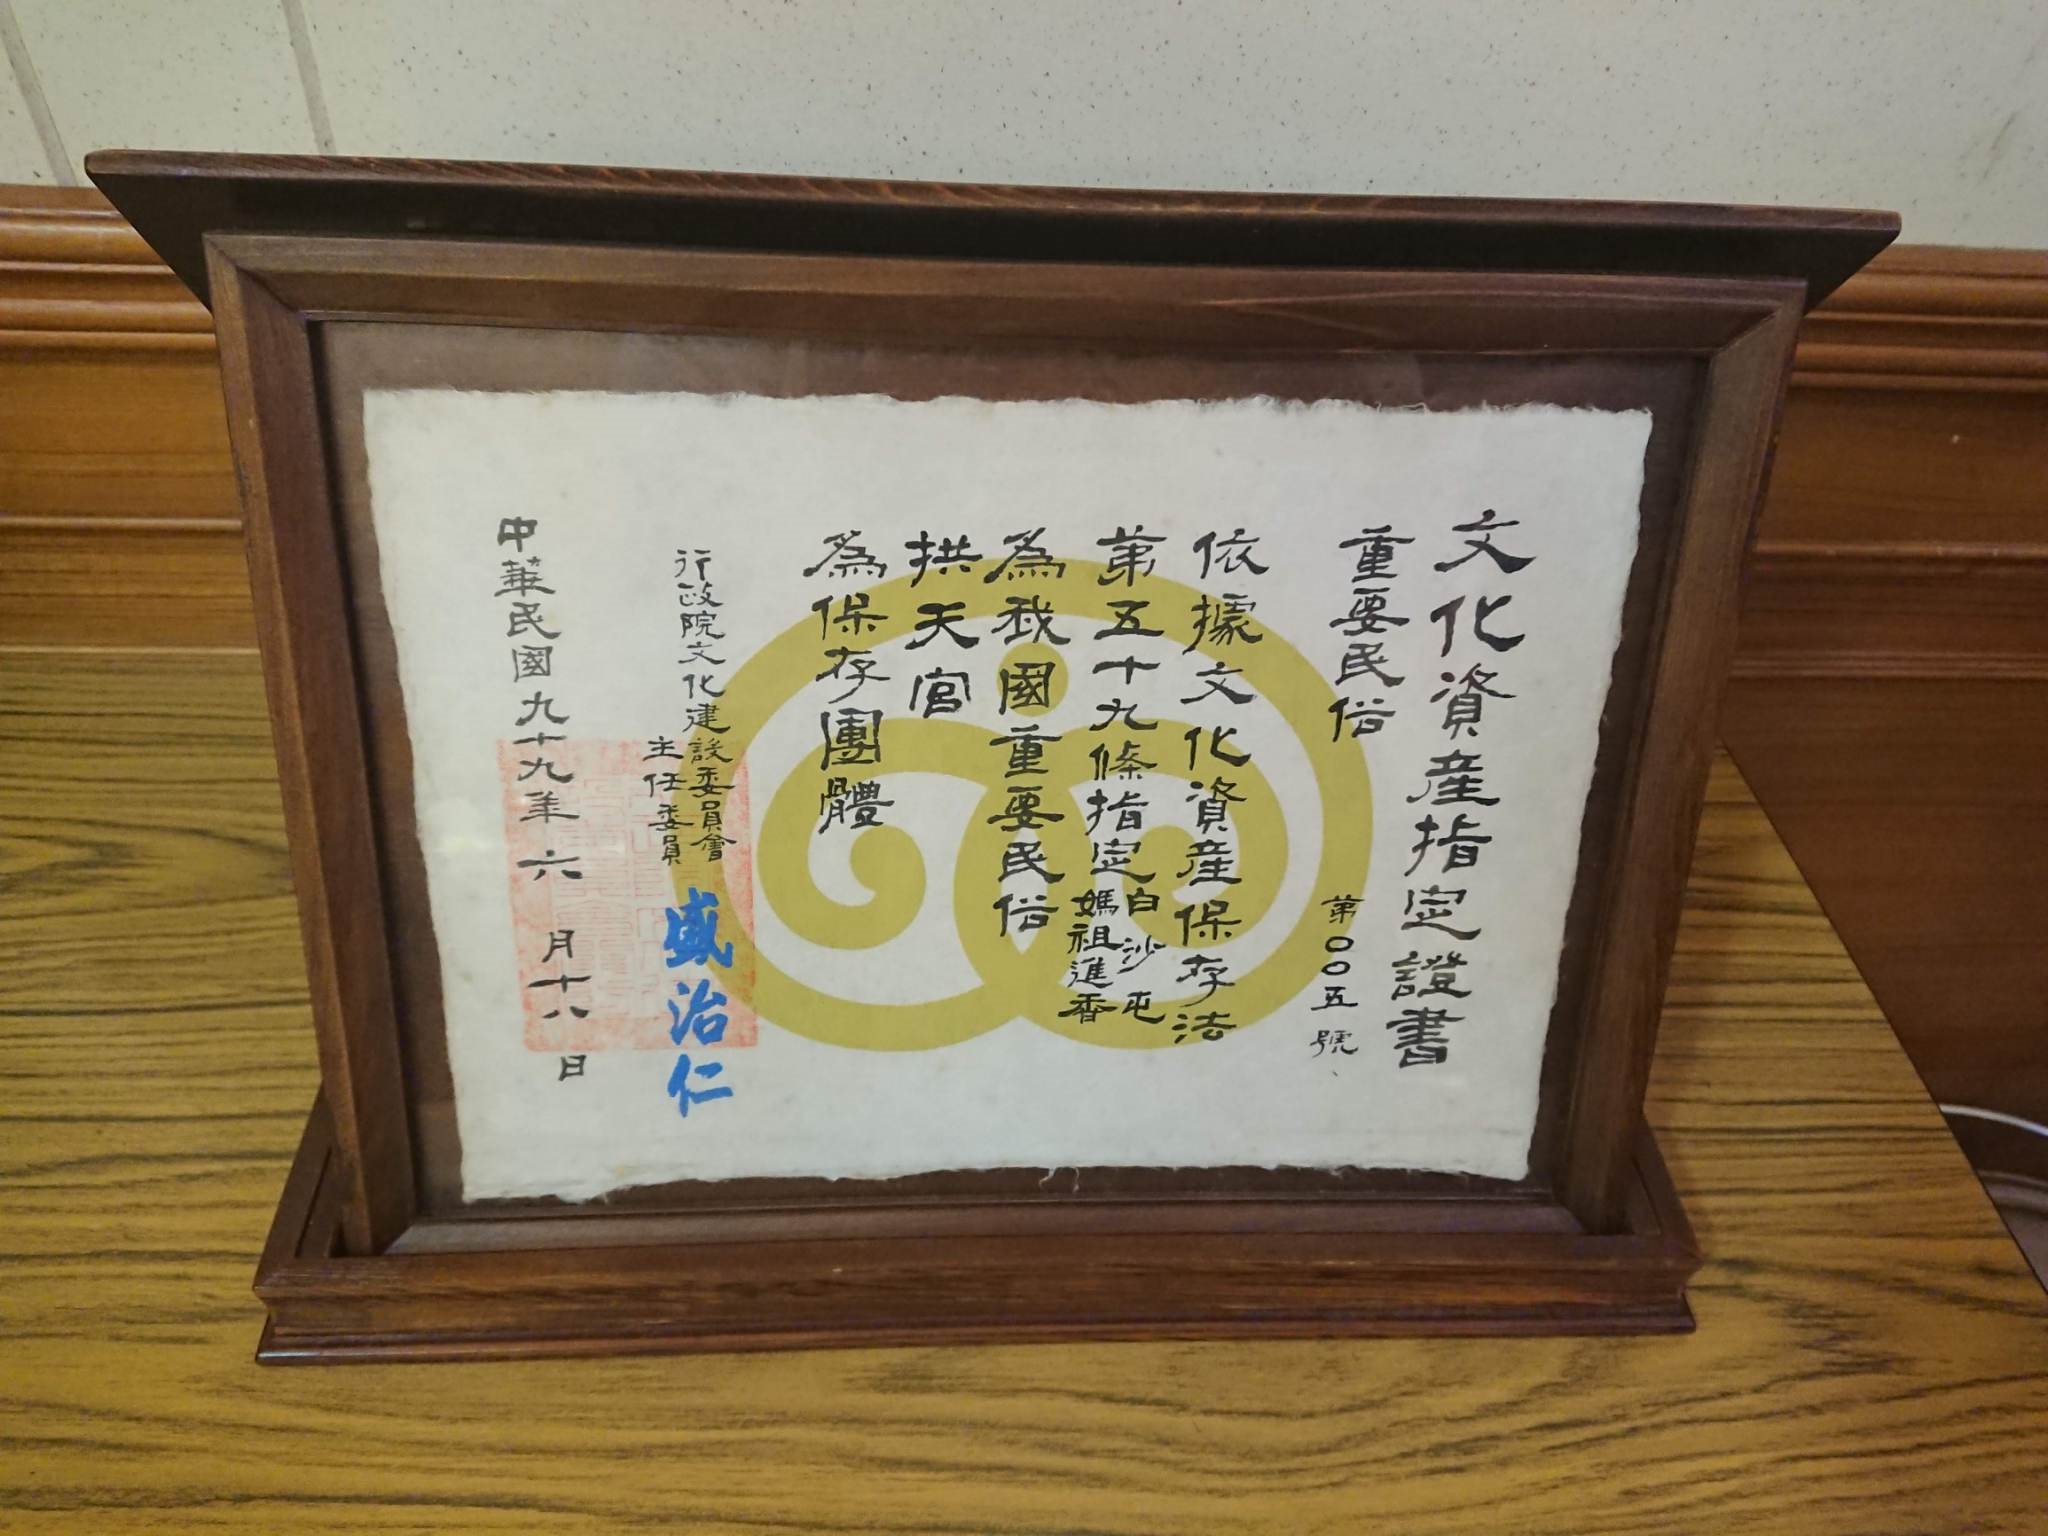 文化資產指定證書
重要民俗
第〇〇五號
依據文化資產保存法
第五十九條指定白沙屯
媽祖進香
為我國重要民俗
拱天宮
為保存團體
行政院文化建設委員會
主任委員
盛治仁
中華民國九十九年六月十八日